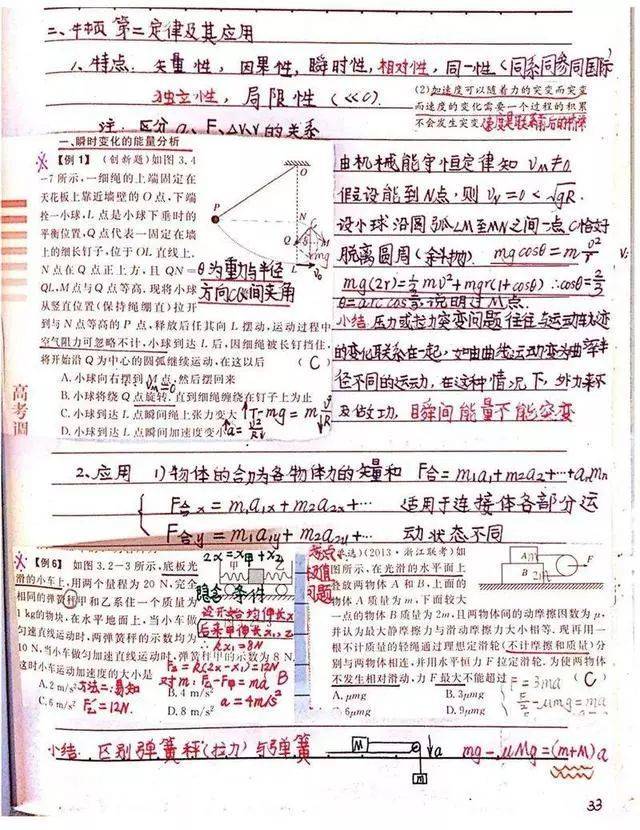 二、牛顿第二定律及其应用
1、特点: 矢量性, 因果性, 瞬时性, 相对性, 同一性(同系同参同国际)
独立性, 局限性 (≪c).
(2)加速度可以随着力的突变而突变
而速度的变化需要一个过程的积累
不会发生突变
注: 区分 a、F、ΔV、V 的关系
一、瞬时变化的能量分析
【例1】(创新题)如图3.4
-7所示,一细绳的上端固定在
天花板上靠近墙壁的O点,下端
拴一小球,L点是小球下垂时的
平衡位置,Q点代表一固定在墙
上的细长钉子,位于OL直线上,
N点在Q点正上方,且QN=
QL,M点与Q点等高,现将小球
从竖直位置(保持绳绷直)拉开
到与N点等高的P点,释放后任其向L摆动,运动过程中
空气阻力可忽略不计,小球到达L后,因细绳被长钉挡住,
将开始沿Q为中心的圆弧继续运动,在这以后 (C)
A.小球向右摆到M点,然后摆回来
B.小球将绕Q点旋转,直到细绳绕在钉子上为止
C.小球到达L点瞬间绳上张力变大↑T-mg=m
D.小球到达L点瞬间加速度变小↑a=
O
P
N
Q
M
L
θ为重力与半径
方向CQ间夹角
由机械能守恒定律知 VM≠0
假设能到N点,则 VN=0<√gR.
设小球沿圆弧LM至MN之间一点C恰好
脱离圆周(斜抛). mgcosθ=mv²/r
mg(2r)=½mv²+mgr(1+cosθ) ∴cosθ=2/3
θ=arccos⅔ 说明过M点.
小结:压力或拉力突变问题往往与运动轨迹
的变化联系在一起,如由曲线运动变为曲率半
径不同的运动,在这种情况下,外力来不
及做功,瞬间能量不能突变
高考调
2、应用 1)物体的合力为各物体力的矢量和 F合=m1a1+m2a2+…+anmn
F合x=m1a1x+m2a2x+… 适用于连接体各部分运
F合y=m1a1y+m2a2y+… 动状态不同
【例6】如图3.2-3所示,底板光
滑的小车上,用两个量程为20N,完全
相同的弹簧秤甲和乙系住一个质量为
1kg的物块,在水平地面上,当小车做
匀速直线运动时,两弹簧秤的示数均为
10N,当小车做匀加速直线运动时,弹簧秤甲的示数为8N,
这时小车运动加速度的大小是
A.2m/s² 方法二:易知
B.4m/s²
C.6m/s² F乙=12N.
D.8m/s² a=4m/s²
2x=x甲+x乙
甲
隐含条件
设开始均伸长x
F乙=k(2x-x1)=12N
对m:F乙-F甲=ma B
考点
极值
问题
选)(2013·浙江联考)如
图所示,在光滑的水平面上
叠放两物体A和B,上面的
物体A质量为m,下面较大
一点的物体B质量为2m,且两物体间的动摩擦因数为μ,
并认为最大静摩擦力与滑动摩擦力大小相等.现再用一
根不计质量的轻绳通过理想定滑轮(不计摩擦和质量)分
别与两物体相连,并用水平恒力F拉定滑轮,为使两物体
不发生相对滑动,力F最大不能超过 (C)
F=3ma
F/2-μmg=ma
A.μmg
B.3μmg
C.6μmg
D.9μmg
A
B
F
小结: 区别弹簧秤(拉力)与弹簧
M
m
↓a
mg-μMg=(m+M)a
33